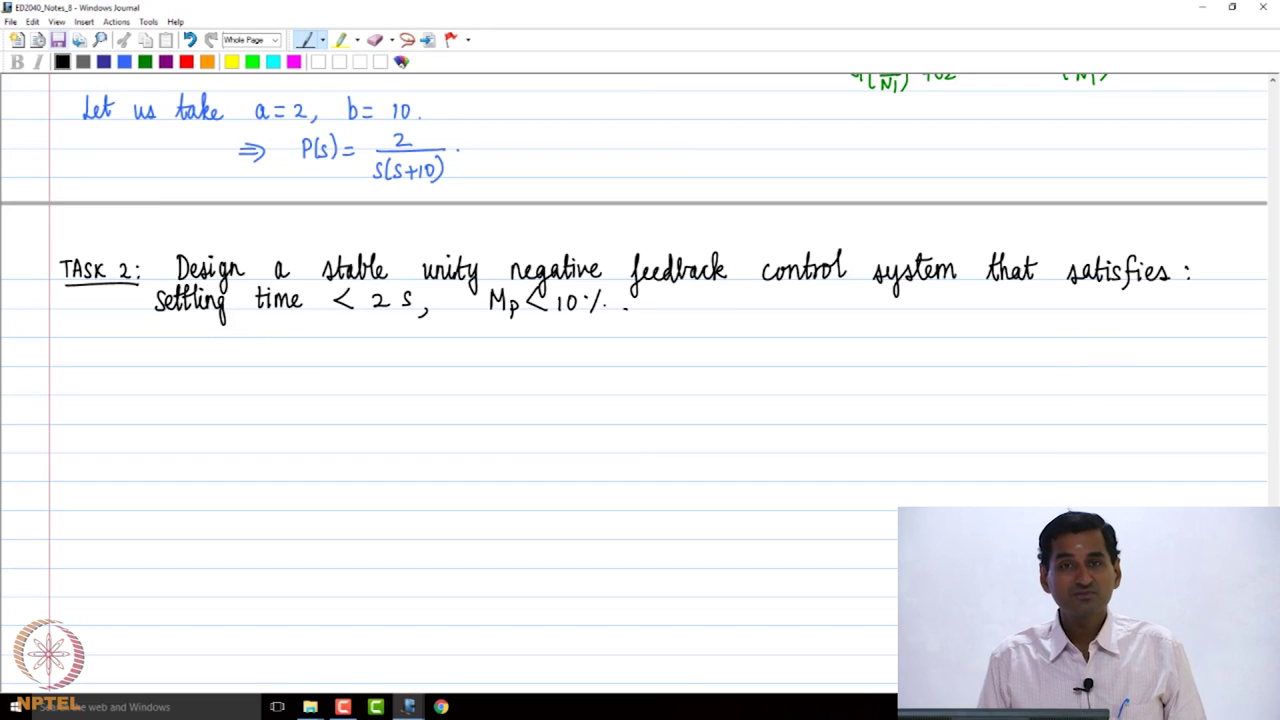 ED2040_Notes_8 - Windows Journal
File Edit View Insert Actions Tools Help
Whole Page
B I
Let us take a = 2, b = 10.
⇒ P(s) = 2 / s(s+10) .
TASK 2: Design a stable unity negative feedback control system that satisfies :
Settling time < 2 s, Mp < 10 % .
NPTEL
Search the web and Windows